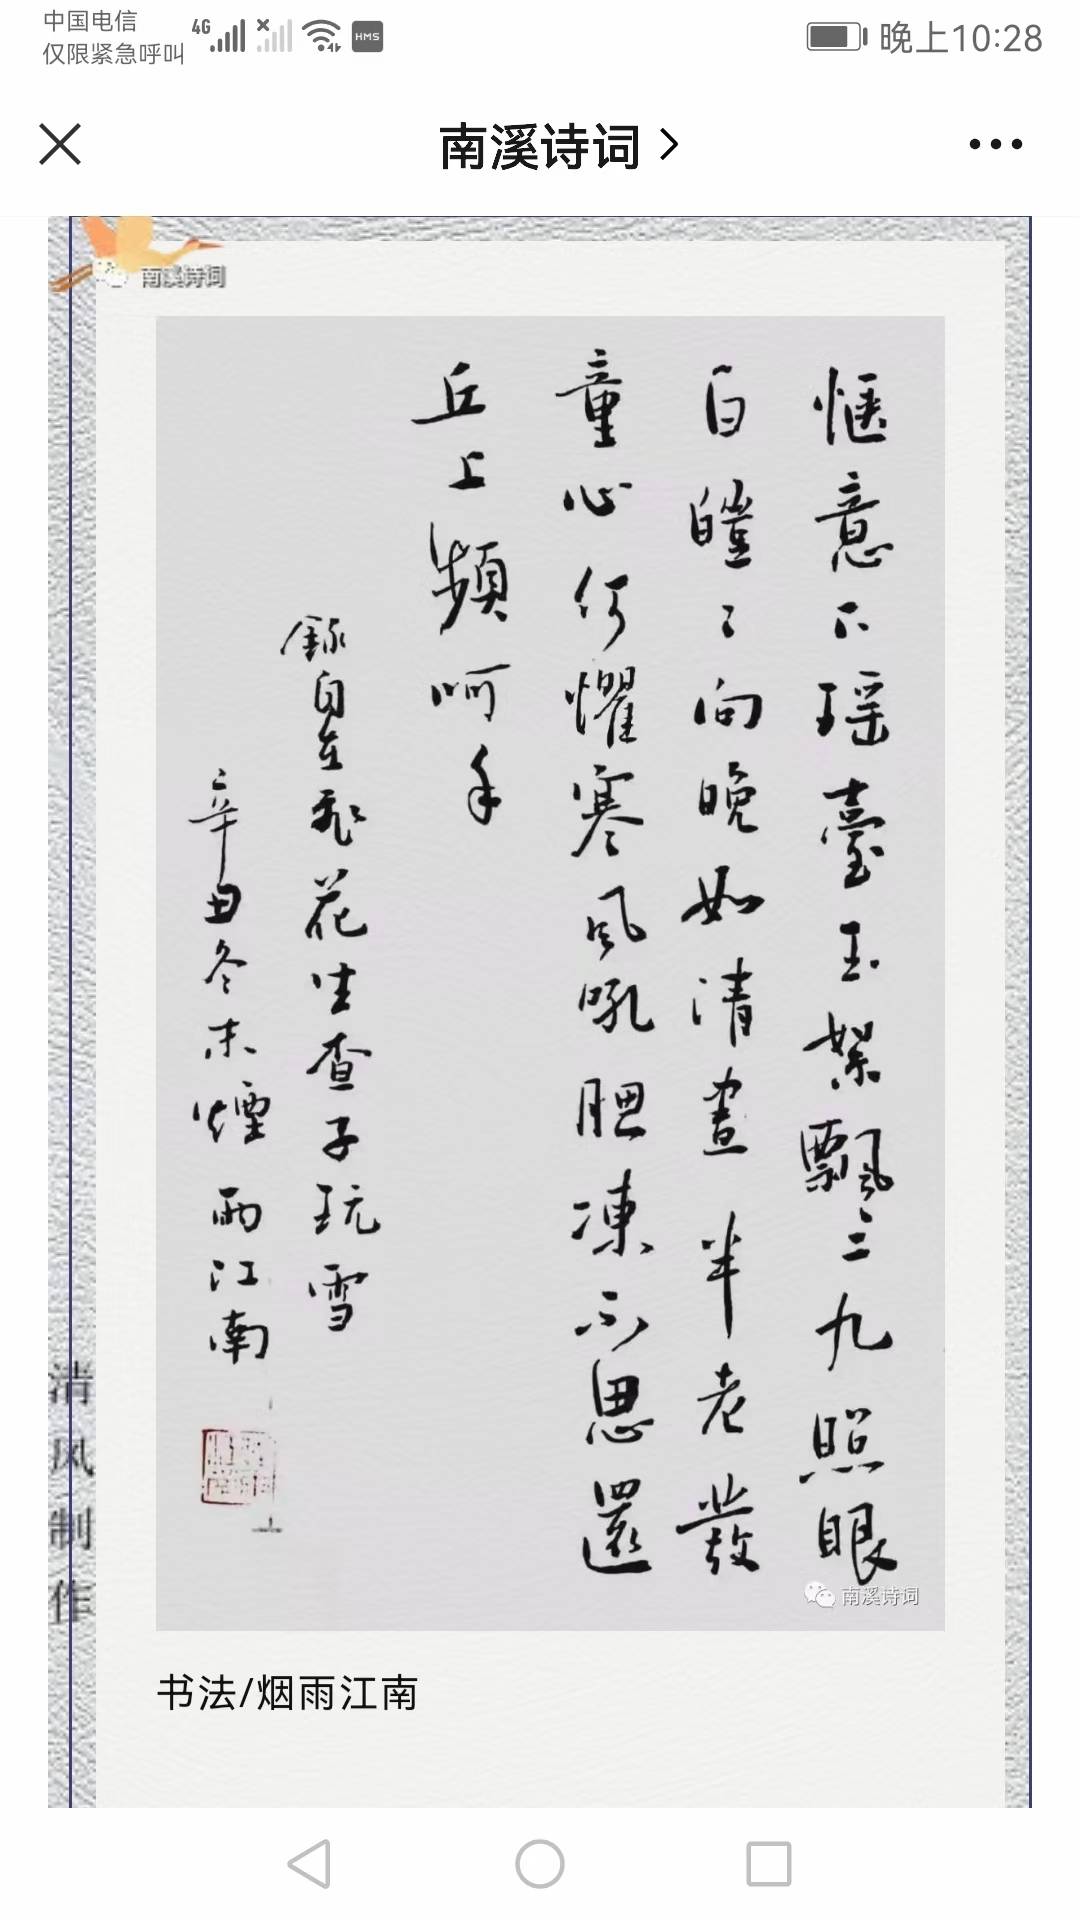 中国电信
仅限紧急呼叫
4G
HMS
晚上10:28
南溪诗词
南溪诗词
惬意下瑶臺玉絮飘三九照眼
白皚々向晚如清晝半老發
童心何懼寒风吼腮凍不思還
丘上频呵手
錄自在飛花生查子玩雪
辛丑冬末煙雨江南
南溪诗词
清风制作
书法/烟雨江南